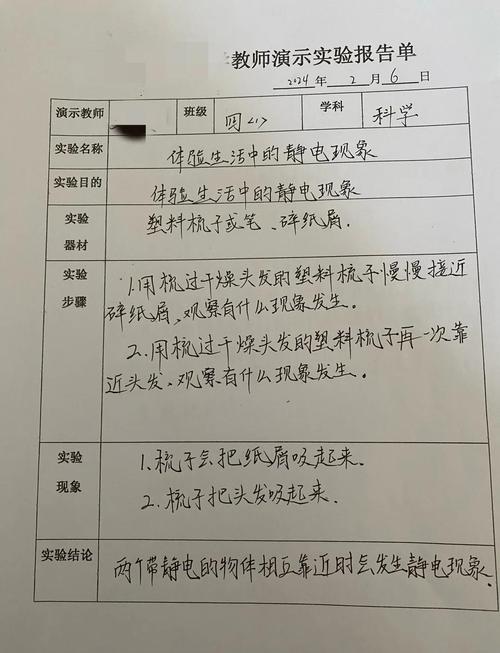 教师演示实验报告单
2024 年 2 月 6 日
演示教师 班级 四(1) 学科 科学
实验名称 体验生活中的静电现象
实验目的 体验生活中的静电现象
实验器材 塑料梳子或笔、碎纸屑.
实验步骤
1.用梳过干燥头发的塑料梳子慢慢接近
碎纸屑、观察有什么现象发生。
2.用梳过干燥头发的塑料梳子再一次靠
近头发、观察有什么现象发生。
实验现象
1.梳子会把纸屑吸起来.
2.梳子把头发吸起来.
实验结论 两个带静电的物体相互靠近时会发生静电现象.